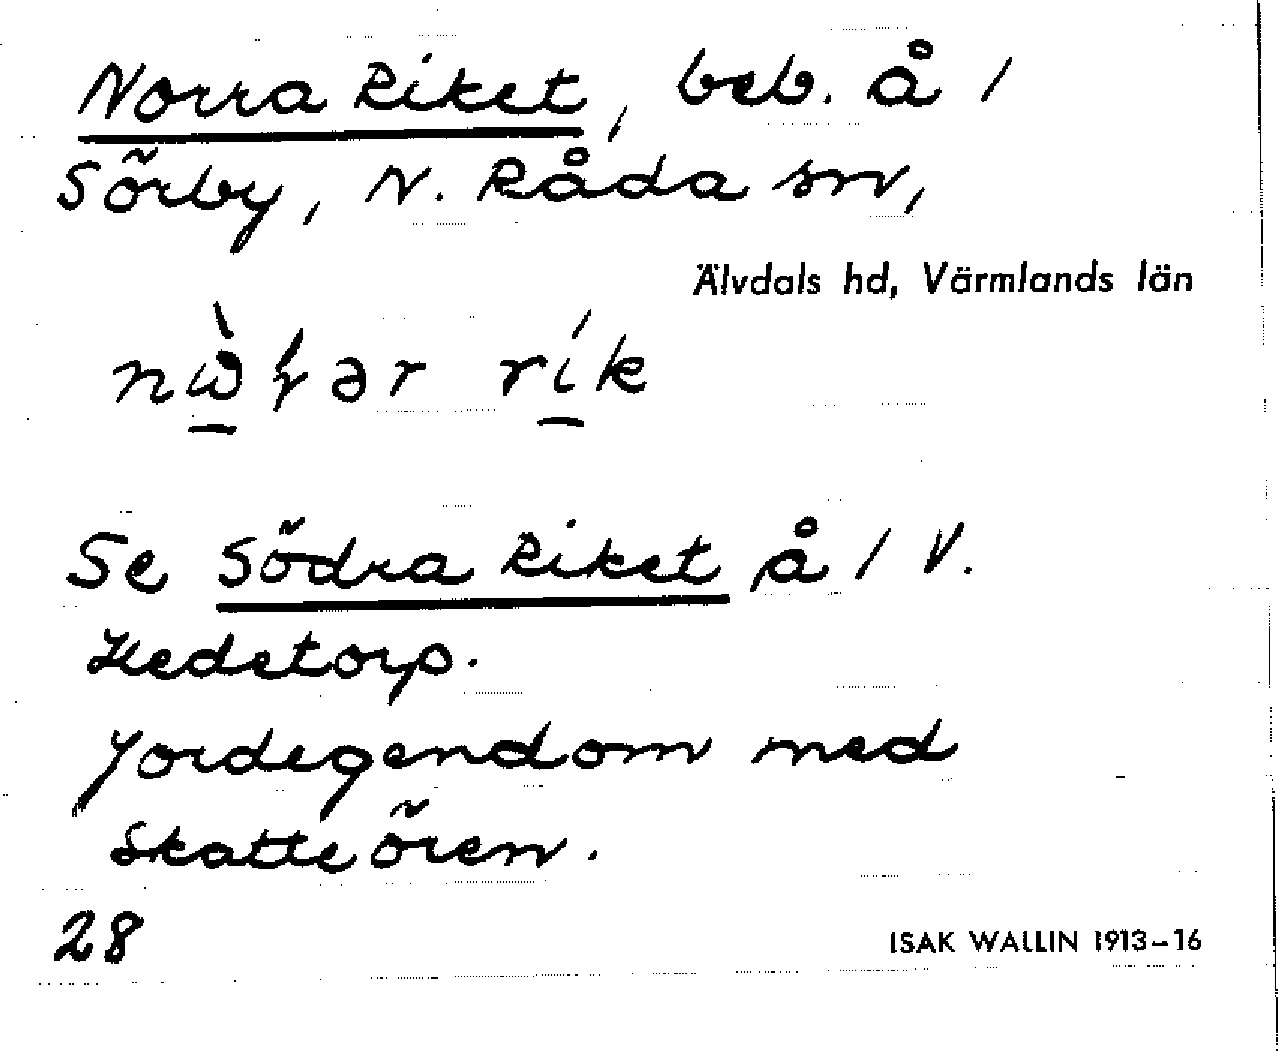 Norra Riket, beb. å /
Sörby, N. Råda sn,
Älvdals hd, Värmlands län
rík
Se Södra Riket å / V.
Hedetorp.
Jordegendom med
Skatteören.
28
ISAK WALLIN 1913–16